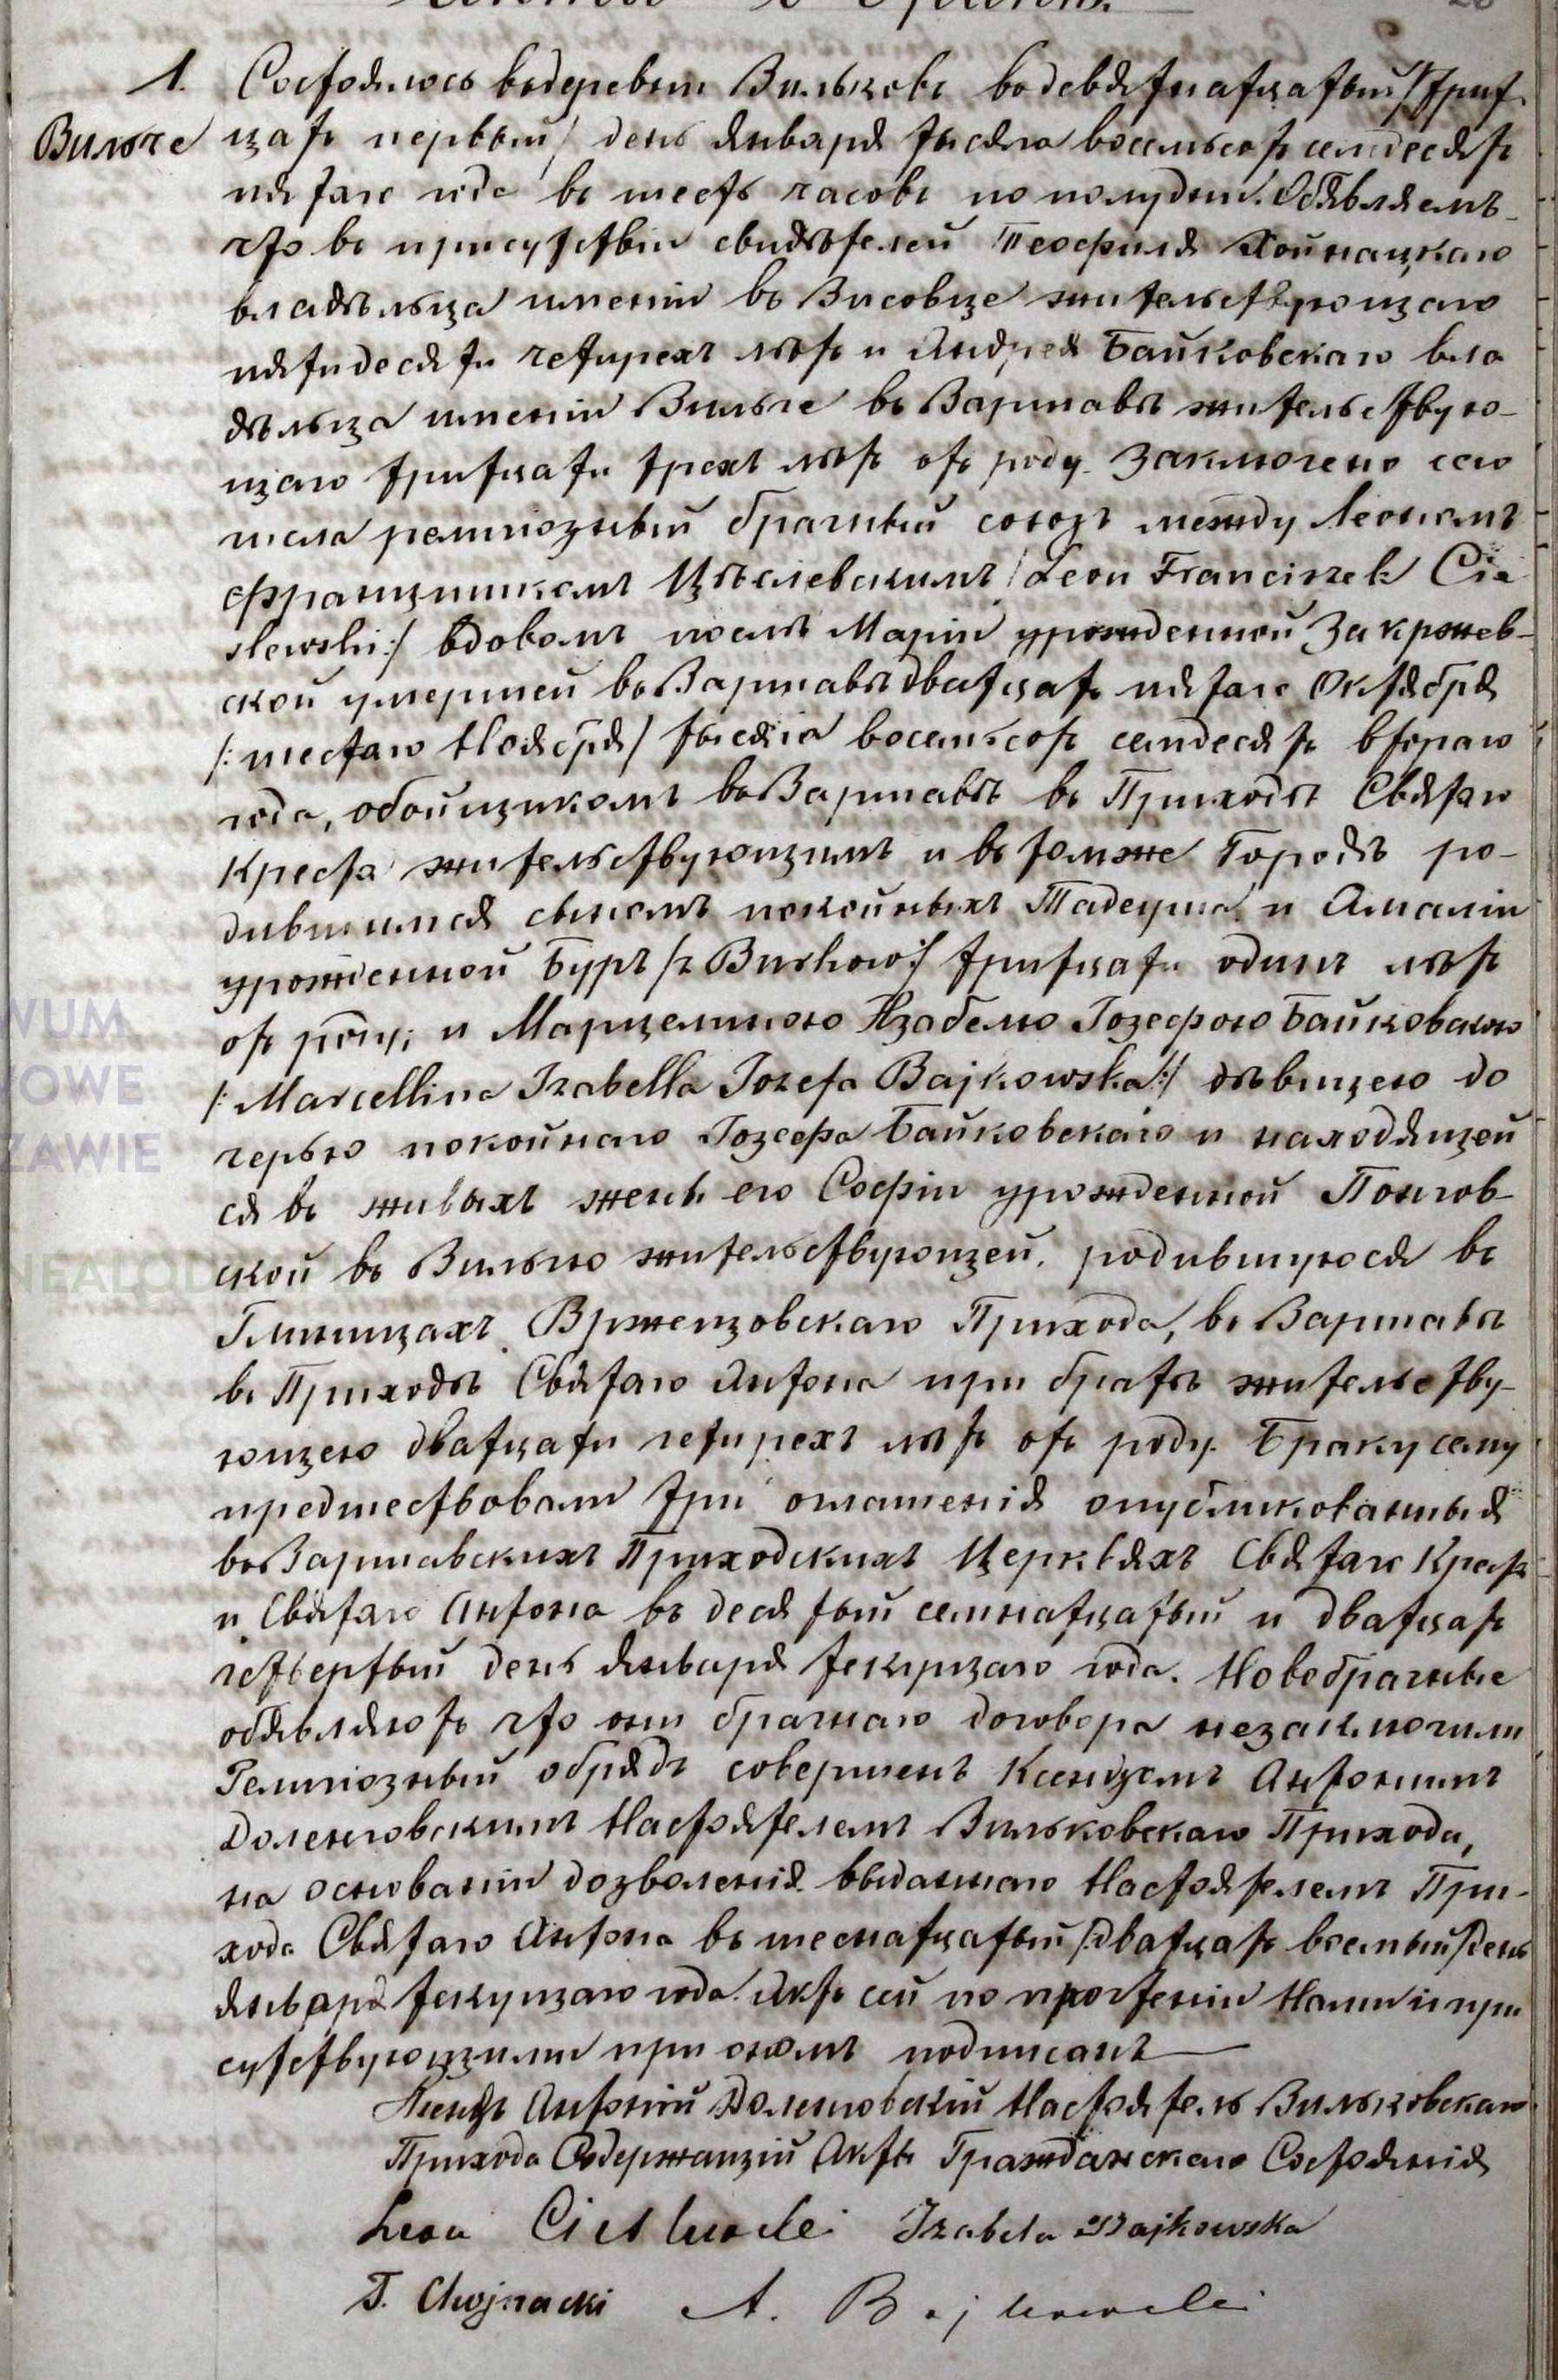 1. Состоялось въ деревни Вильковъ въ девятнатцатый /:трит
Вильче цать первый/ день Января тысяча восемьсотъ семдесятъ
пятаго года въ шесть часовъ по полудни. Объявляемъ
что въ присутствіи свидѣтелей Теофиля Хойнацкаго
владѣльца имѣніи въ Висовце жительствующаго
пятидесяти четирехъ лѣтъ и Андрея Байковскаго вла
дѣльца имѣніи Вильче въ Варшавѣ жительствую-
щаго тритцати трехъ лѣтъ отъ роду. Заключено сего
числа религіозный брачный союзъ между Леономъ
Францишкомъ Цѣслевскимъ /Leon Franciszek Cie
slewski:/ вдовомъ послѣ Маріи урожденной Закржев-
ской умершей въ Варшавѣ дватцать пятаго Октября
/:шестаго Ноября/ тысяча восемьсотъ семдесятъ втораго
года, обойщикомъ въ Варшавѣ въ Приходѣ Святаго
Креста жительствующимъ и въ томже Городѣ ро-
дившимся сыномъ покойныхъ Тадеуша и Амаліи
урожденной Буръ /z Burhow:/ тритцати одинъ лѣтъ
отъ роду; и Марцеллиною Изабеллю Іозефою Байковскою
/:Marcellina Izabella Jozefa Bajkowska:/ дѣвицею до
черью покойнаго Іозефа Байковскаго и находящей
ся въ живыхъ жены его Софіи урожденной Понгов-
ской въ Вильчю жительствующей, родившуюся въ
Глиницахъ Врженцовскаго Прихода, въ Варшавѣ
въ Приходѣ Святаго Антона при братѣ жительству-
ющею дватцати четирехъ лѣтъ отъ роду. Браку сему
предшествовали три оглашенія опубликованныя
въ Варшавскихъ Приходскихъ Церквяхъ Святаго Крест
и Святаго Антона въ десятый семнатцатый и дватцать
четвертый день Января текущаго года. Новобрачные
объявляютъ что они брачнаго договора незаключили
Религіозный обрядъ совершенъ Ксендзомъ Антонимъ
Доленговскимъ Настоятелемъ Вильковскаго Прихода,
на основаніи дозволенія выданнаго Настоятелемъ При-
хода Святаго Антона въ шеснатцатый /:дватцать восьмый/ день
Января текущаго года. Актъ сей по прочтеніи Нами и при
сутствующими при ономъ подписанъ
Ксендзъ Антоній Доленговскій Настоятель Вильковскаго
Прихода Содержащій Акты Гражданскаго Состоянія
Leon Cieslewski Izabela Bajkowska
T. Chojnacki A. Bajkowski